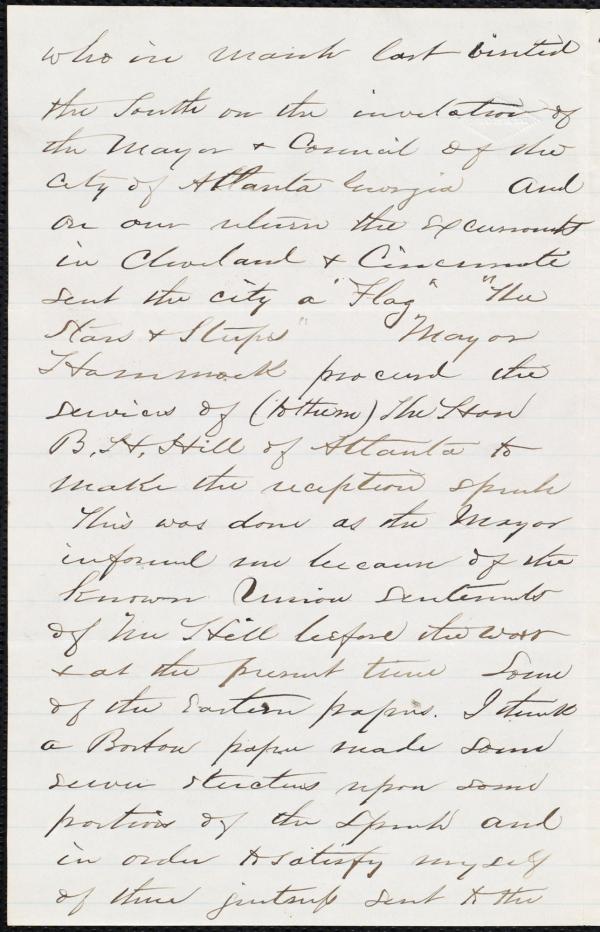 who in March last visited
the South on the invitation of
the Mayor & Council of the
City of Atlanta Georgia And
on our return the excursionists
in Cleveland & Cincinnati
sent the city a "Flag" "The
Stars & Stripes" Mayor
Hammock procured the
services of (to them) The Hon
B. H. Hill of Atlanta to
make the reception speech
This was done as the Mayor
informed me because of the
known Union sentiments
of Mr Hill before the War
& at the present time Some
of the Eastern papers. I think
a Boston paper made some
severe strictures upon some
portions of the Speech and
in order to satisfy myself
of their sent to the